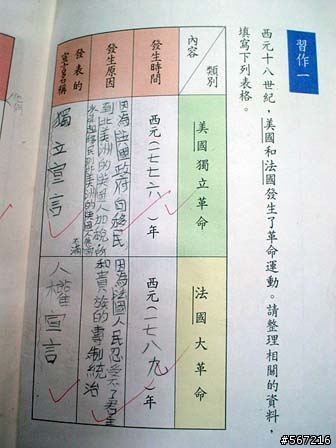 習作一
西元十八世紀，美國和法國發生了革命運動。請整理相關的資料，
填寫下列表格。
類別
內容
美國獨立革命
法國大革命
發生時間
西元（一七七六）年
西元（一七八九）年
發生原因
因為英國政府向移民
到北美洲的英國人加稅
移民到北美洲的英國人
不滿
因為法國人民忍受不了君主
和貴族的專制統治
發表的
宣言名稱
獨立宣言
人權宣言
#567216